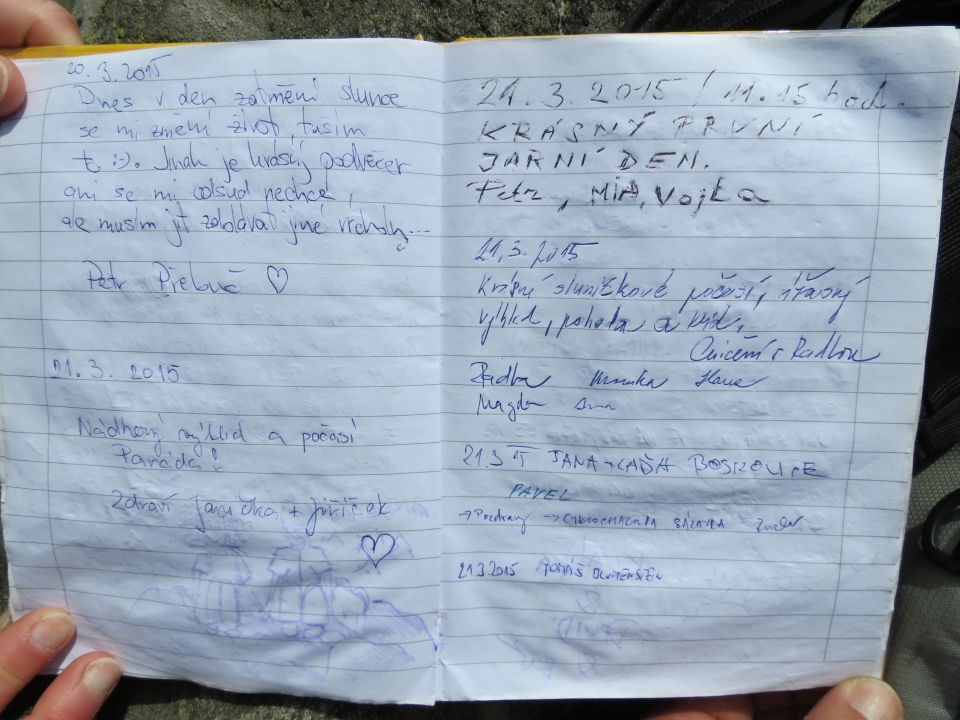 20. 3. 2015
Dnes v den zatmění slunce
se mi změní život, tuším
to :-). Jinak je krásný podvečer
ani se mi odsud nechce,
ale musím jít zdolávat jiné vrcholy...
Petr
21. 3. 2015
Nádherný výhled a počasí
Paráda!
Zdraví Janička + Jiříček
21. 3. 2015 / 11.15 hod.
KRÁSNÝ PRVNÍ
JARNÍ DEN.
Petr, MIA, Vojta
21. 3. 2015
Krásné sluníčkové počasí, úžasný
výhled, pohoda a klid.
Cvičení s Radkou
Radka Monika Hana
Magda
21.3 JANA + LAĎA BOSKOVICE
PAVEL
→ Pozdravy → SÁZAVA
21.3.2015 TOMÁŠ